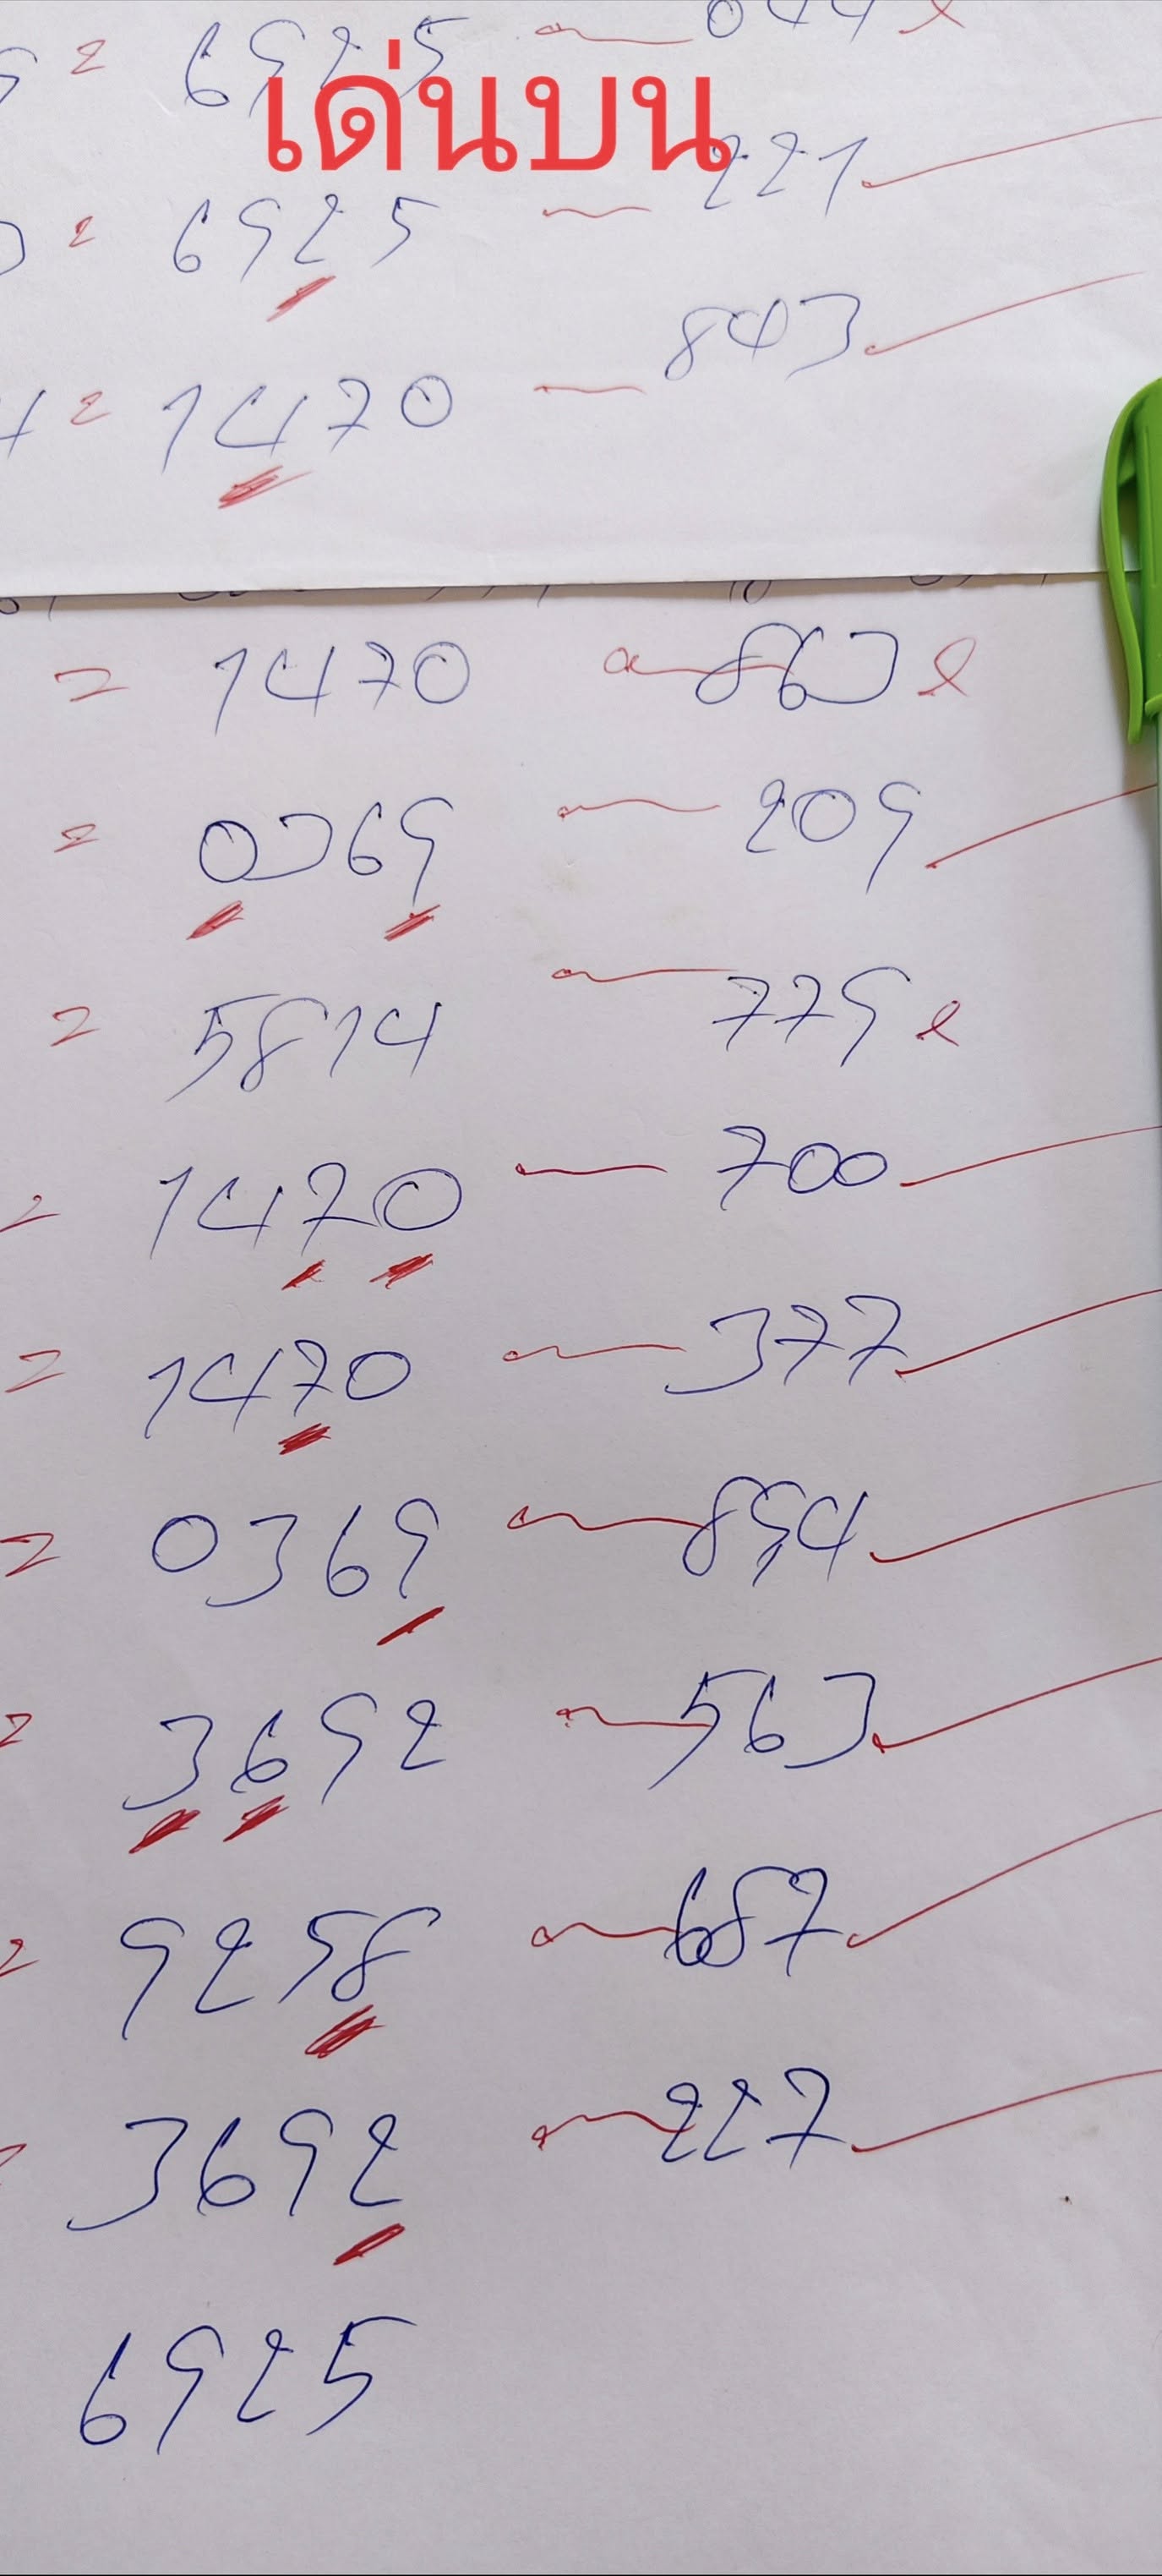 = 6925 — 044 x
เด่นบน
= 6925 — 221 ✓
= 1470 — 843 ✓
= 1470 — 863 x
= 0369 — 209 ✓
= 5814 — 779 x
= 1470 — 700 ✓
= 1470 — 377 ✓
= 0369 — 894 ✓
= 3692 — 563 ✓
= 9258 — 687 ✓
= 3692 — 227 ✓
6925